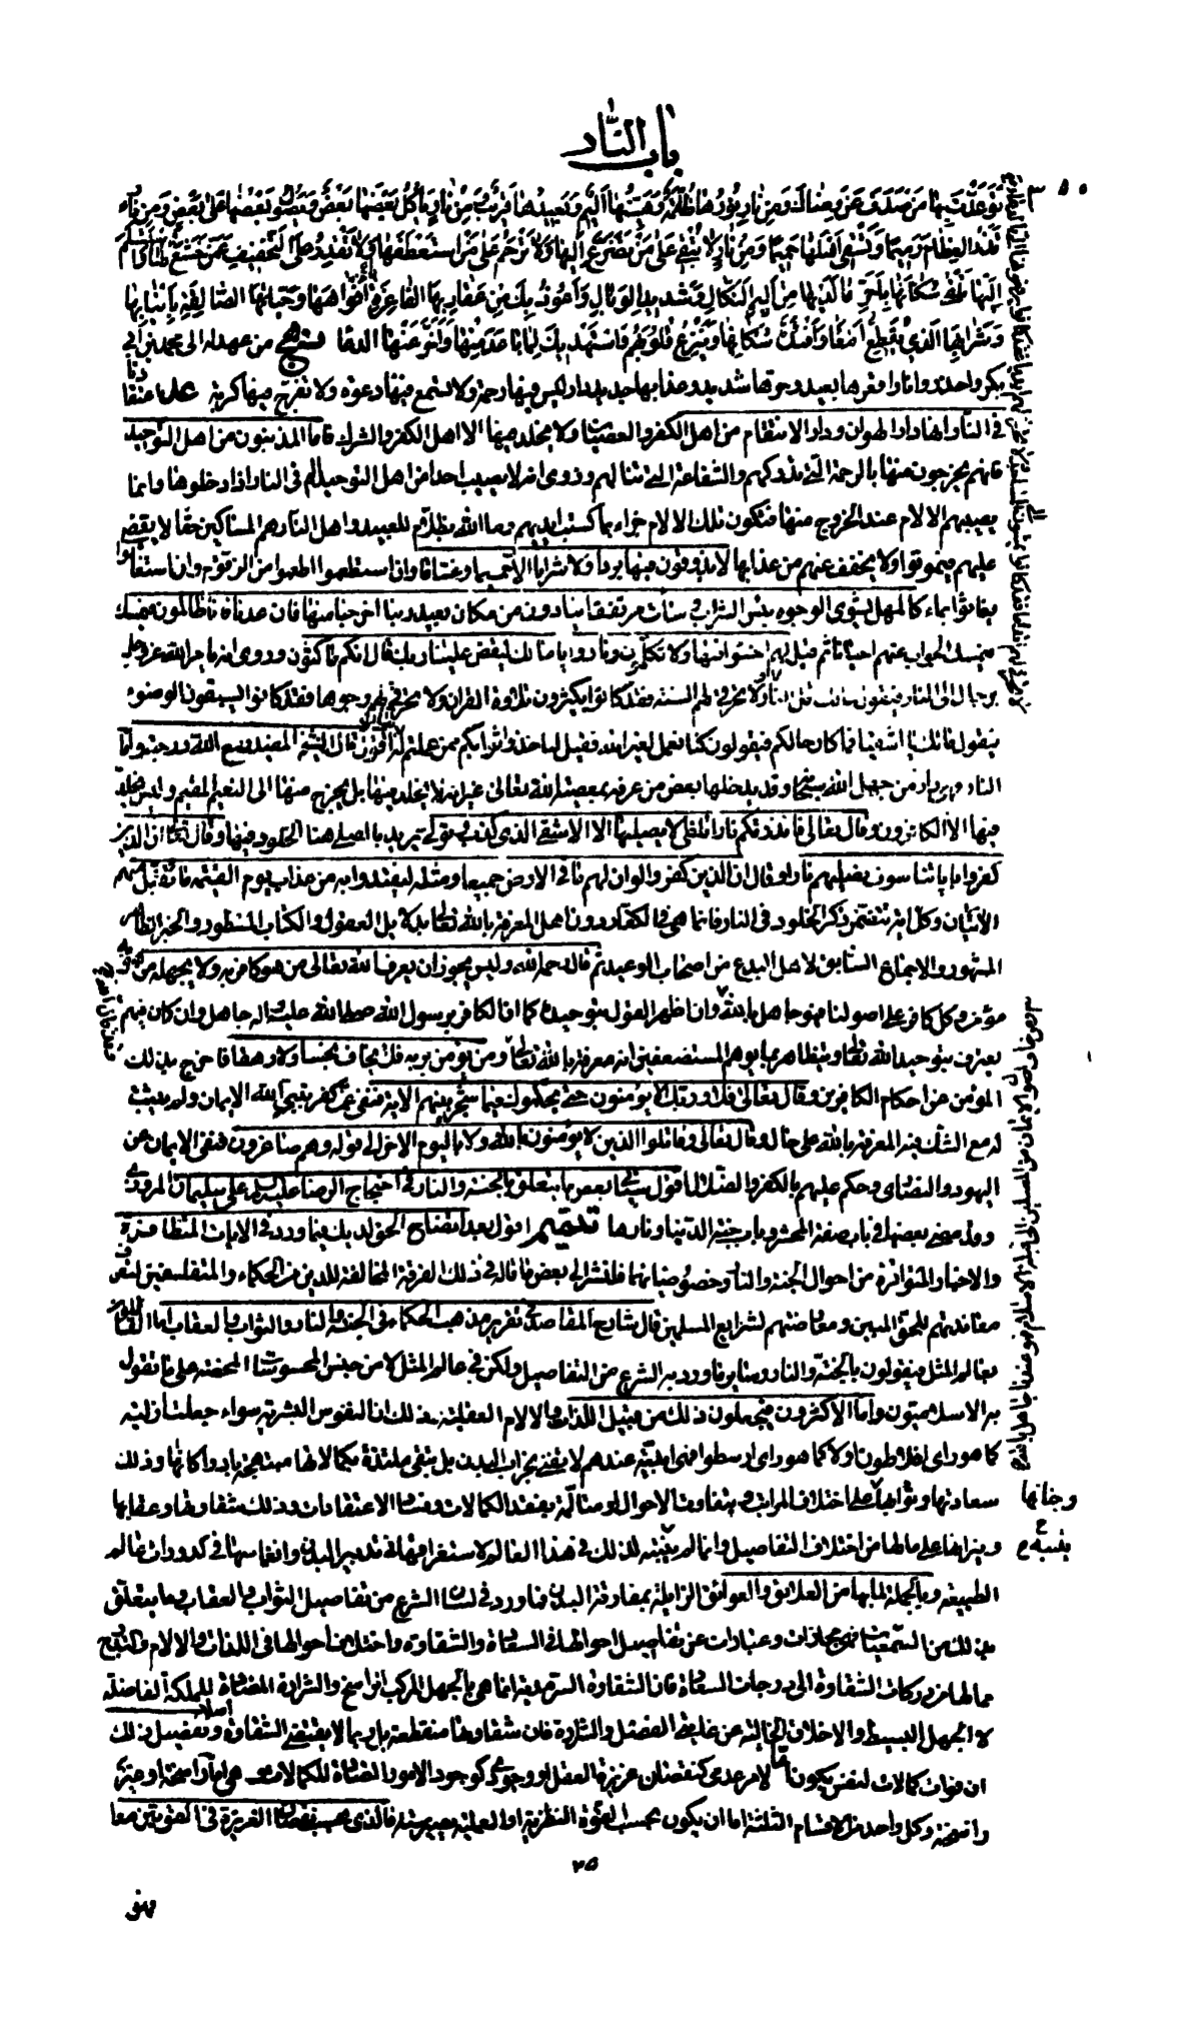 باب النار
٣٨٠
توعدت بها من صدف عن رضاك ومن نار نورها ظلمة وهينها اليم وبعيدها قريب ومن نار يأكل بعضها بعض ويصول بعضها على بعض ومن نار
تذر العظام رميما وتسقي اهلها حميما ومن نار لا تبقي على من تضرع اليها ولا ترحم على من استعطفها ولا تقدر على التخفيف عمن خشع لها واستسلم
اليها تلقى سكانها باحر ما لديها من اليم النكال وشديد الوبال واعوذ بك من عقاربها الفاغرة افواهها وحياتها الصالقة بانيابها
وشرابها الذي يقطع امعاء وافئدة سكانها وينزع قلوبهم واستهديك لما باعد منها واخر عنها الدعاء نهج من عهد له الى محمد بن ابي
بكر واحذروا نارا قعرها بعيد وحرها شديد وعذابها جديد دار ليس فيها رحمة ولا تسمع فيها دعوة ولا تفرج فيها كربة عد اعتقادنا
في النار انها دار الهوان ودار الانتقام من اهل الكفر والعصيان ولا يخلد فيها الا اهل الكفر والشرك فاما المذنبون من اهل التوحيد
فانهم يخرجون منها بالرحمة التي تدركهم والشفاعة التي تنالهم وروي انه لا يصيب احدا من اهل التوحيد الم في النار اذا دخلوها وانما
يصيبهم الالام عند الخروج منها فتكون تلك الالام جزاء بما كسبت ايديهم وما الله بظلام للعبيد واهل النار هم المساكين حقا لا يقضى
عليهم فيموتوا ولا يخفف عنهم من عذابها لا يذوقون فيها بردا ولا شرابا الا حميما وغساقا وان استطعموا اطعموا من الزقوم وان استغاثوا
يغاثوا بماء كالمهل يشوي الوجوه بئس الشراب وساءت مرتفقا ينادون من مكان بعيد ربنا اخرجنا منها فان عدنا فانا ظالمون فيمسك
الجواب عنهم احيانا ثم قيل لهم اخسئوا فيها ولا تكلمون ونادوا يا مالك ليقض علينا ربك قال انكم ماكثون وروي انه يأمر الله عز وجل
برجال الى النار فيقول لمالك قل للنار لا تحرقي لهم السنة فقد كانوا يكثرون تلاوة القران ولا تحرقي لهم وجوها فقد كانوا يسبغون الوضوء
فيقول مالك يا اشقياء فما كان حالكم فيقولون كنا نعمل لغير الله فقيل لنا خذوا ثوابكم ممن عملتم له اقول قال الشيخ المفيد رفع الله درجته واما
النار فهي دار من جهل الله سبحانه وقد يدخلها بعض من عرفه بمعصية الله تعالى غير انه لا يخلد فيها بل يخرج منها الى النعيم المقيم وليس يخلد
فيها الا الكافرون وقال تعالى فانذرتكم نارا تلظى لا يصليها الا الاشقى الذي كذب وتولى يريد بالصلي هنا الخلود فيها وقال تعالى ان الذين
كفروا باياتنا سوف نصليهم نارا وقال ان الذين كفروا لو ان لهم ما في الارض جميعا ومثله ليفتدوا به من عذاب يوم القيمة ما تقبل منهم
الايتان وكل اية تتضمن ذكر الخلود في النار فانما هي في الكفار دون اهل المعرفة بالله تعالى بدلائل العقول والكتاب المسطور والخبر الظاهر
المشهور والاجماع السابق لاهل البدع من اصحاب الوعيد ثم قال رحمه الله وليس يجوز ان يعرف الله تعالى من هو كافر به ولا يجهله من هو به
مؤمن وكل كافر على اصولنا فهو جاهل بالله وان اظهر القول بتوحيده كما ان الكافر برسول الله صلى الله عليه واله جاهل وان كان فيهم من
يعترف بتوحيد الله تعالى ويتظاهر بما يوهم المستضعفين انه معرفة بالله تعالى ومن يؤمن بربه فلا يخاف بخسا ولا رهقا فاخرج بذلك
المؤمن عن احكام الكافرين وقال تعالى فلا وربك لا يؤمنون حتى يحكموك فيما شجر بينهم الاية فنفى عمن كفر بنبي الله الايمان ولم يثبت
له مع الشك فيه المعرفة بالله على حال وقال تعالى وقاتلوا الذين لا يؤمنون بالله ولا باليوم الاخر الى قوله وهم صاغرون فنفى الايمان عن
اليهود والنصارى وحكم عليهم بالكفر والضلال اقول سيأتي بعض ما يتعلق بالجنة والنار في احتجاج الرضا عليه السلام على سليمان المروزي
وقد مضى بعضها في باب صفة المحشر وباب جنة الدنيا ونارها تتميم اقول بعد اتضاح الحق لديك فيما ورد في الايات المتظافرة
والاخبار المتواترة من احوال الجنة والنار وخصوصياتهما فلنشر الى بعض ما قاله في ذلك الفرقة المخالفة للدين من الحكماء والمتفلسفين لتعرف
معاندتهم للحق المبين ومعارضتهم لشرايع المسلمين قال شارح المقاصد في تقرير مذهب الحكماء في الجنة والنار والثواب والعقاب اما القائلون
بعالم المثل فيقولون بالجنة والنار وسائر ما ورد به الشرع من التفاصيل ولكن في عالم المثل لا من جنس المحسوسات المحضة على ما تقول
به الاسلاميون واما الاكثرون فيجعلون ذلك من قبيل اللذات والالام العقلية وذلك ان النفوس البشرية سواء جعلت ازلية
كما هو راي افلاطون او لا كما هو راي ارسطو فهي ابدية عندهم لا يفنى بخراب البدن بل تبقى ملتذة بكمالاتها مبتهجة بادراكاتها وذلك
سعادتها وثوابها وجنانها على اختلاف المراتب وبتفاوت الاحوال او متالمة بفقد الكمالات وفساد الاعتقادات وذلك شقاوتها وعقابها
ونيرانها على مالها من اختلاف التفاصيل وانما لم يتنبه لذلك في هذا العالم لاستغراقها في تدبير البدن وانغماسها في كدورات عالم
الطبيعة وبالجملة لما بها من العلائق والعوائق الزايلة بمفارقة البدن فما ورد في لسان الشرع من تفاصيل الثواب والعقاب وما يتعلق
بذلك من السمعيات فهي مجازات وعبارات عن تفاصيل احوالها في السعادة والشقاوة واختلاف احوالها في اللذات والالام والتدرج
مما لها من دركات الشقاوة الى درجات السعادة فان الشقاوة السرمدية انما هي بالجهل المركب الراسخ والشرارة المضادة للملكة الفاضلة
لا الجهل البسيط والاخلاق الخالية عن غايتي الفضل والشرارة فان شقاوتها منقطعة بل ربما لا يقتضي الشقاوة اصلا وتفصيل ذلك
ان فوات كمالات النفس يكون اما لامر عدمي كنقصان غريزة العقل او وجودي كوجود الامور المضادة للكمالات وهي اما راسخة او غير
راسخة وكل واحد من الاقسام الثلثة اما ان يكون بحسب القوة النظرية او العملية يصير ستة فالذي بحسب نقصان الغريزة في القوتين معا
وجنانها
يتنبه
٢٥
فهو